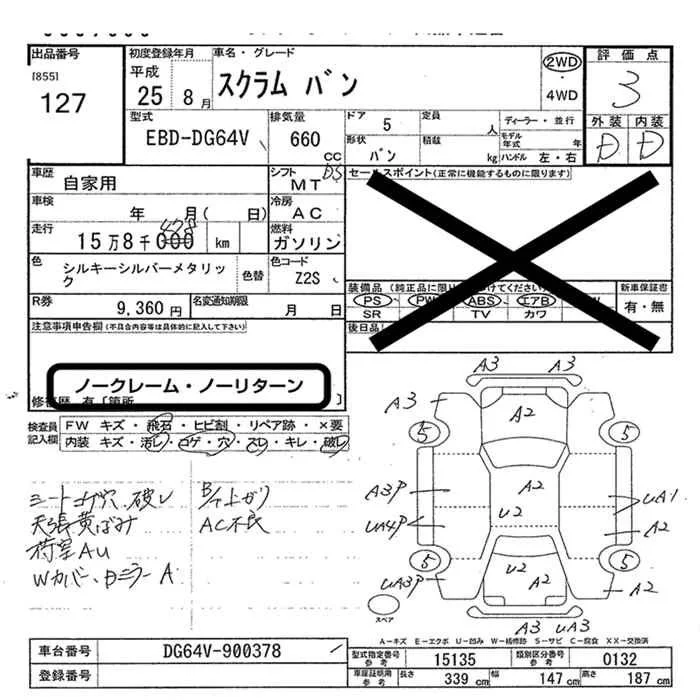 出品番号
[855]
127
初度登録年月
平成
25 8月
車名・グレード
スクラム バン
2WD
・
4WD
評価点
3
外装 内装
D D
型式
EBD-DG64V
排気量
660
CC
ドア 5
定員 人
形状
バン
積載 kg
ディーラー・並行
モデル年式 年
ハンドル 左・右
車歴
自家用
シフト
MT D5
車検
年 月( 日)
冷房
AC
走行
15万8千000 km
478
燃料
ガソリン
色
シルキーシルバーメタリック
色替
色コード
Z2S
R券
9,360円
名変通知期限
月 日
セールスポイント(正常に機能するものに限ります)
装備品(純正品に限り
けてください)
PS PW ABS エアB W
SR TV カワ
新車保証書
有・無
後日品
注意事項申告欄(不具合内容等は具体的に記入して下さい)
ノークレーム・ノーリターン
修復歴 有[箇所 ]
検査員
記入欄
FW キズ・飛石・ヒビ割・リペア跡・×要
内装 キズ・汚レ・コゲ・穴・スレ・キレ・破レ
シートコゲ穴、破レ
天張黄ばみ
荷室AU
Wカバー、Dミラー A
B/下上がり
AC不良
A3 A3
A3
A2
5 5
A3P
A2
U2
UA1
UA4P
A2
5 5
U2
A2
UA3P
A2
スペア
A3 UA3
A-キズ E-エクボ U-凹み W-補修跡 S-サビ C-腐食 XX-交換済
車台番号
DG64V-900378
登録番号
型式指定番号
参考
15135
類別区分番号
参考
0132
車庫証明用
参考
長さ
339 cm
幅
147 cm
高さ
187 cm